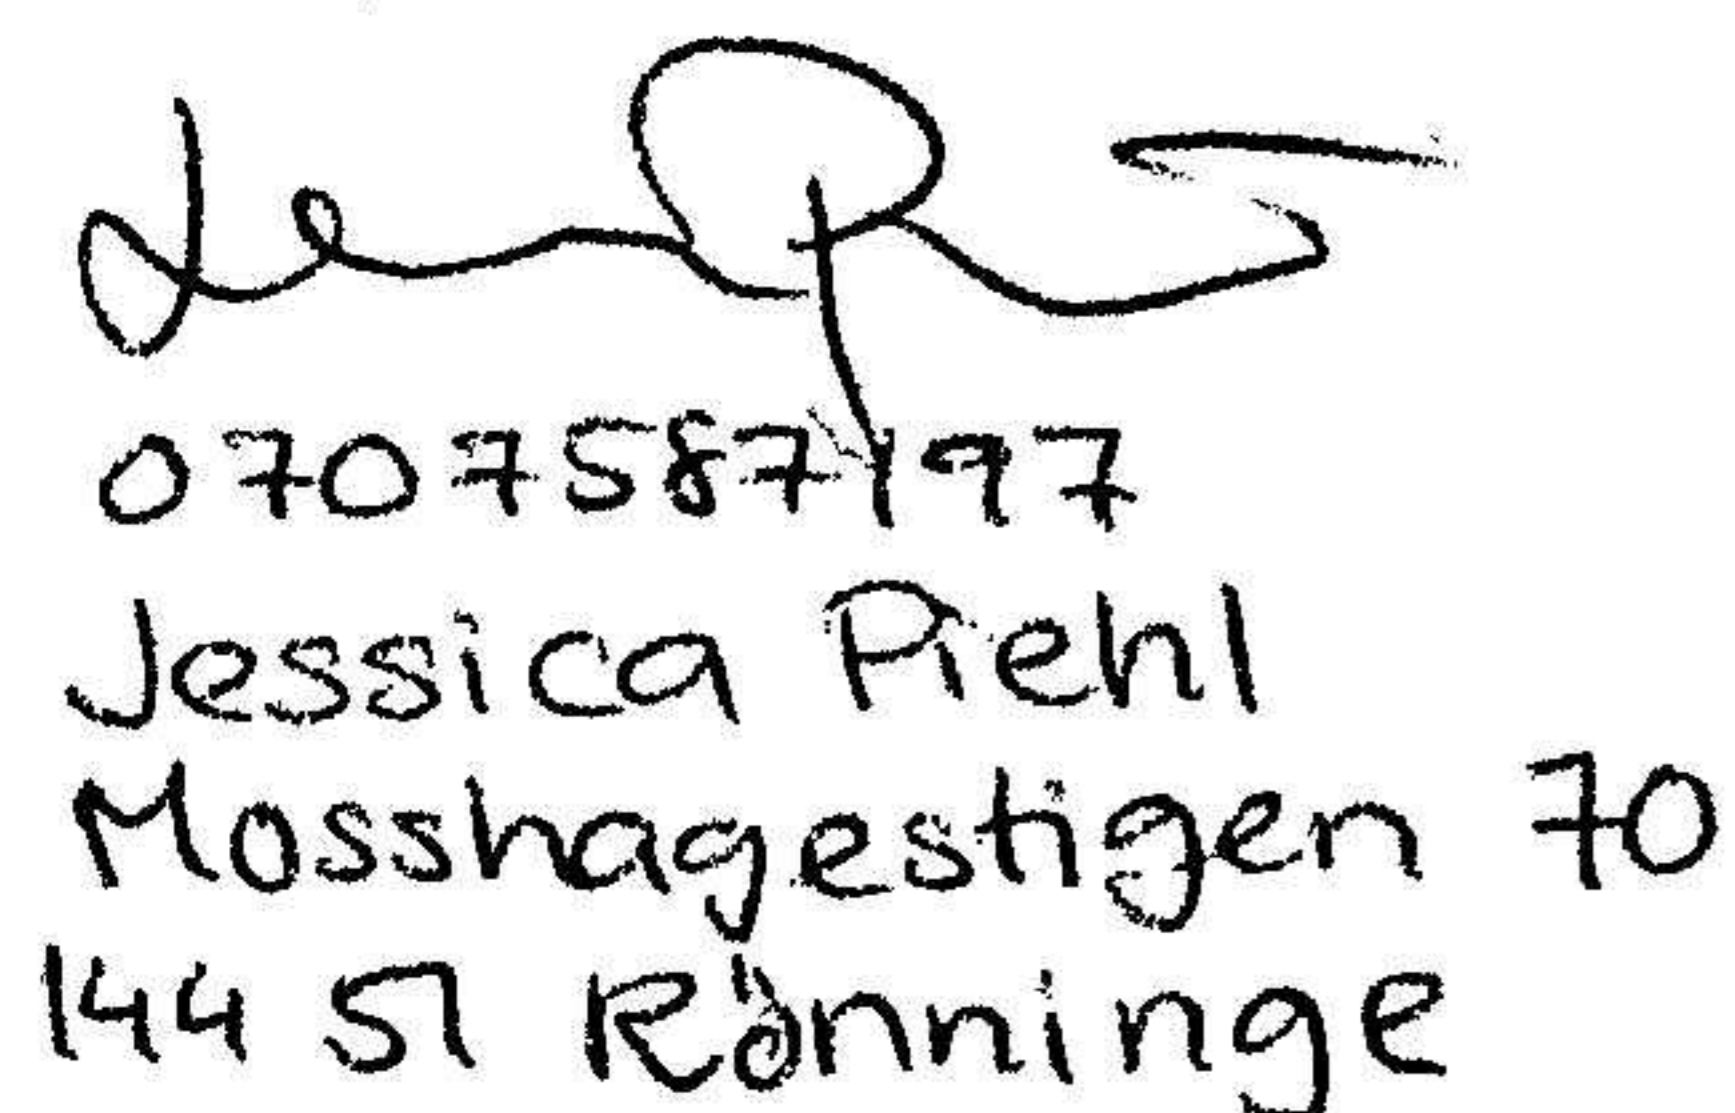 0707587197
Jessica Piehl
Mosshagestigen 70
144 51 Rönninge